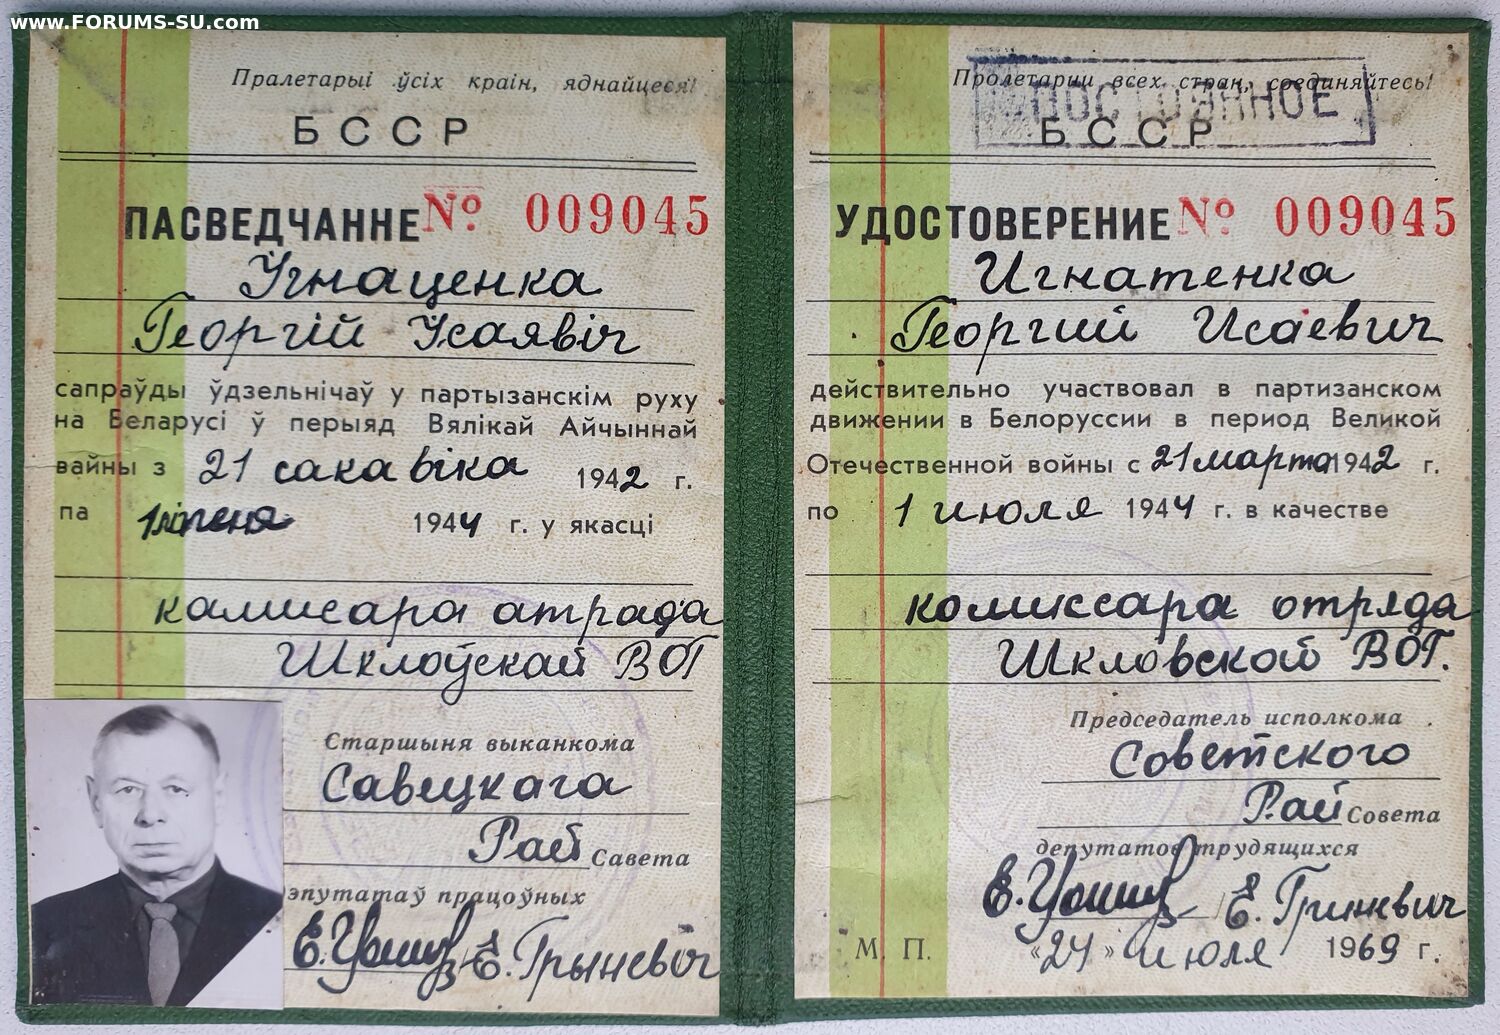 www.FORUMS-SU.com
Пралетарыі ўсіх краін, яднайцеся!
БССР
ПАСВЕДЧАННЕ № 009045
Ігнаценка
Георгій Ісаявіч
сапраўды ўдзельнічаў у партызанскім руху
на Беларусі ў перыяд Вялікай Айчыннай
вайны з 21 сакавіка 1942 г.
па 1 ліпеня 1944 г. у якасці
камісара атрада
Шклоўскай ВОГ
Старшыня выканкома
Савецкага
Рай Савета
эпутатаў працоўных
Е. Грынкевіч
Пролетарии всех стран, соединяйтесь!
ПОСТОЯННОЕ
БССР
УДОСТОВЕРЕНИЕ № 009045
Игнатенка
Георгий Исаевич
действительно участвовал в партизанском
движении в Белоруссии в период Великой
Отечественной войны с 21 марта 1942 г.
по 1 июля 1944 г. в качестве
комиссара отряда
Шкловской ВОГ.
Председатель исполкома
Советского
Рай Совета
депутатов трудящихся
Е. Гринкевич
М. П. «24» июля 1969 г.